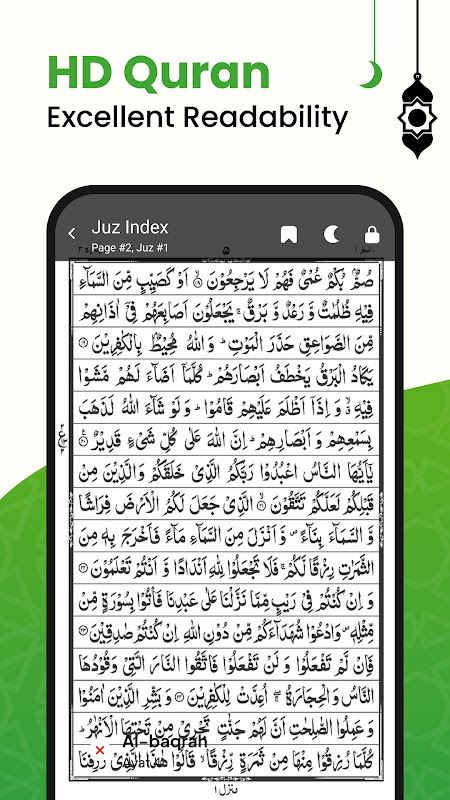 HD Quran
Excellent Readability
Juz Index
Page #2, Juz #1
صُمٌّۢ بُكْمٌ عُمْیٌ فَهُمْ لَا یَرْجِعُوْنَ ۱۸ اَوْ كَصَیِّبٍ مِّنَ السَّمَآءِ
فِیْهِ ظُلُمٰتٌ وَّ رَعْدٌ وَّ بَرْقٌ ۚ یَجْعَلُوْنَ اَصَابِعَهُمْ فِیْۤ اٰذَانِهِمْ
مِّنَ الصَّوَاعِقِ حَذَرَ الْمَوْتِ ؕ وَ اللّٰهُ مُحِیْطٌۢ بِالْكٰفِرِیْنَ ۱۹
یَكَادُ الْبَرْقُ یَخْطَفُ اَبْصَارَهُمْ ؕ كُلَّمَاۤ اَضَآءَ لَهُمْ مَّشَوْا
فِیْهِ ۙۗ وَ اِذَاۤ اَظْلَمَ عَلَیْهِمْ قَامُوْا ؕ وَ لَوْ شَآءَ اللّٰهُ لَذَهَبَ
بِسَمْعِهِمْ وَ اَبْصَارِهِمْ ؕ اِنَّ اللّٰهَ عَلٰى كُلِّ شَیْءٍ قَدِیْرٌ ۲۰
یٰۤاَیُّهَا النَّاسُ اعْبُدُوْا رَبَّكُمُ الَّذِیْ خَلَقَكُمْ وَ الَّذِیْنَ مِنْ
قَبْلِكُمْ لَعَلَّكُمْ تَتَّقُوْنَ ۲۱ الَّذِیْ جَعَلَ لَكُمُ الْاَرْضَ فِرَاشًا
وَّ السَّمَآءَ بِنَآءً ۪ وَّ اَنْزَلَ مِنَ السَّمَآءِ مَآءً فَاَخْرَجَ بِهٖ مِنَ
الثَّمَرٰتِ رِزْقًا لَّكُمْ ۚ فَلَا تَجْعَلُوْا لِلّٰهِ اَنْدَادًا وَّ اَنْتُمْ تَعْلَمُوْنَ ۲۲
وَ اِنْ كُنْتُمْ فِیْ رَیْبٍ مِّمَّا نَزَّلْنَا عَلٰى عَبْدِنَا فَاْتُوْا بِسُوْرَةٍ مِّنْ
مِّثْلِهٖ ۪ وَ ادْعُوْا شُهَدَآءَكُمْ مِّنْ دُوْنِ اللّٰهِ اِنْ كُنْتُمْ صٰدِقِیْنَ ۲۳
فَاِنْ لَّمْ تَفْعَلُوْا وَ لَنْ تَفْعَلُوْا فَاتَّقُوا النَّارَ الَّتِیْ وَ قُوْدُهَا
النَّاسُ وَ الْحِجَارَةُ ۖۚ اُعِدَّتْ لِلْكٰفِرِیْنَ ۲۴ وَ بَشِّرِ الَّذِیْنَ اٰمَنُوْا
وَ عَمِلُوا الصّٰلِحٰتِ اَنَّ لَهُمْ جَنّٰتٍ تَجْرِیْ مِنْ تَحْتِهَا الْاَنْهٰرُ ؕ
Al-baqrah
كُلَّمَا رُزِقُوْا مِنْهَا مِنْ ثَمَرَةٍ رِّزْقًا ۙ قَالُوْا هٰذَا الَّذِیْ رُزِقْنَا
منزل ۱